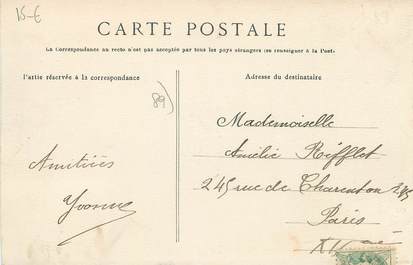 15-€
CARTE POSTALE
La Correspondance au recto n'est pas acceptée par tous les pays étrangers (se renseigner à la Poste
Partie réservée à la correspondance
Adresse du destinataire
89)
Amitiés
Yvonne
Mademoiselle
Amélie Rifflet
245 rue de Charenton
Paris